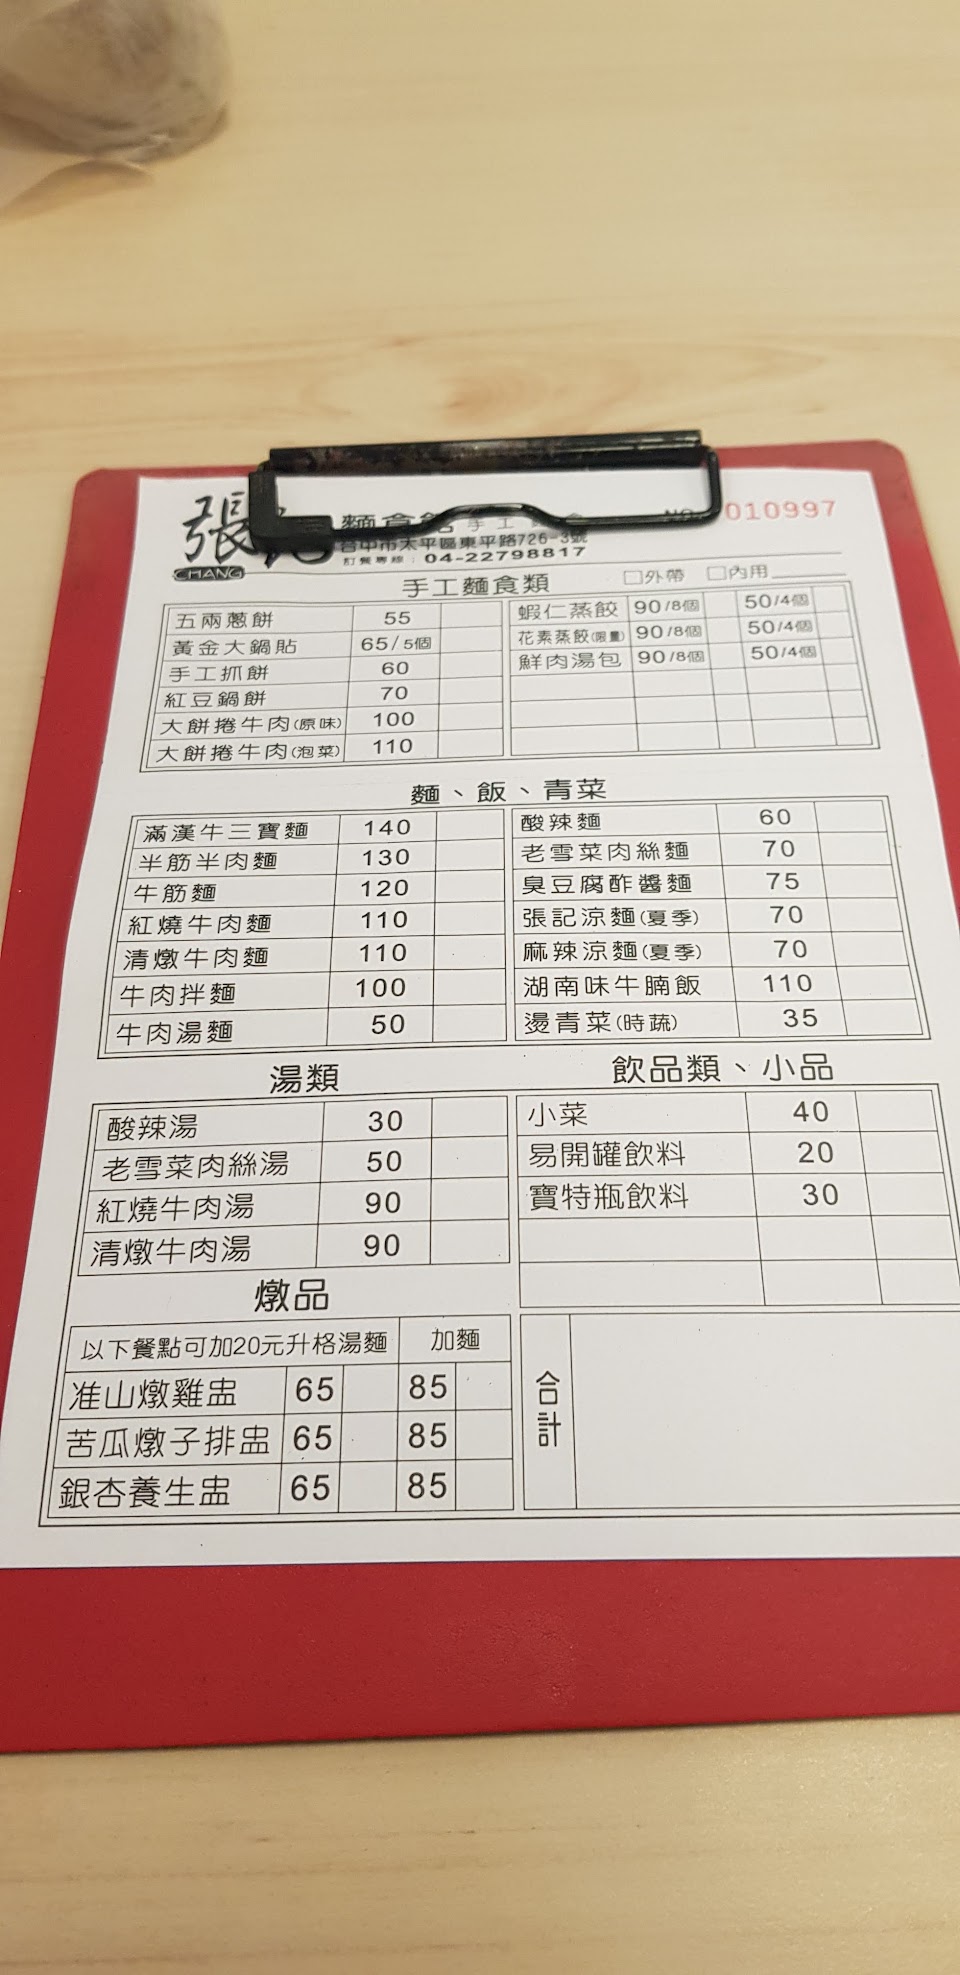 張記
CHANG
麵食館 手工
NO. 010997
台中市太平區東平路726-3號
訂餐專線：04-22798817
手工麵食類 □外帶 □內用
五兩蔥餅 55
黃金大鍋貼 65/5個
手工抓餅 60
紅豆鍋餅 70
大餅捲牛肉(原味) 100
大餅捲牛肉(泡菜) 110
蝦仁蒸餃 90/8個 50/4個
花素蒸餃(限量) 90/8個 50/4個
鮮肉湯包 90/8個 50/4個
麵、飯、青菜
滿漢牛三寶麵 140
半筋半肉麵 130
牛筋麵 120
紅燒牛肉麵 110
清燉牛肉麵 110
牛肉拌麵 100
牛肉湯麵 50
酸辣麵 60
老雪菜肉絲麵 70
臭豆腐酢醬麵 75
張記涼麵(夏季) 70
麻辣涼麵(夏季) 70
湖南味牛腩飯 110
燙青菜(時蔬) 35
湯類
酸辣湯 30
老雪菜肉絲湯 50
紅燒牛肉湯 90
清燉牛肉湯 90
飲品類、小品
小菜 40
易開罐飲料 20
寶特瓶飲料 30
燉品
以下餐點可加20元升格湯麵 加麵
准山燉雞盅 65 85
苦瓜燉子排盅 65 85
銀杏養生盅 65 85
合計